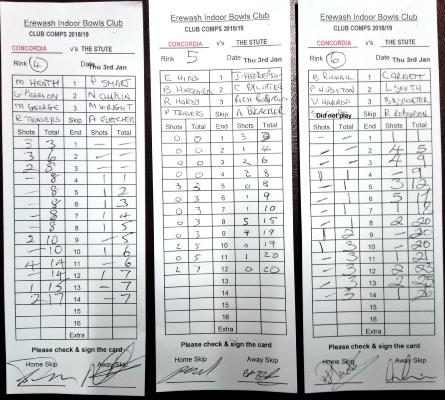 Erewash Indoor Bowls Club
CLUB COMPS 2018/19
CONCORDIA v's THE STUTE
Rink 4 Date Thu 3rd Jan
M HEATH 1 P SMART
G PEARSON 2 N CHAPLIN
M GEORGE 3 M WRIGHT
R TRAVERS Skip A FLETCHER
Shots Total End Shots Total
3 3 1 - -
3 6 2 - -
2 8 3 - -
- 8 4 1 1
- 8 5 1 2
- 8 6 1 3
- 8 7 1 4
- 8 8 1 5
2 10 9 - 5
- 10 10 1 6
4 14 11 - 6
- 14 12 1 7
1 15 13 - 7
2 17 14 - 7
15
16
Extra
Please check & sign the card
Home Skip Away Skip
Erewash Indoor Bowls Club
CLUB COMPS 2018/19
CONCORDIA v's THE STUTE
Rink 5 Date Thu 3rd Jan
E HIND 1
B 2 C
R HARDY 3
P TRAVERS Skip A
Shots Total End Shots Total
0 0 1 3
0 0 2 1 4
0 0 3 2 6
0 0 4 2 8
3 3 5 0 8
0 3 6 1 9
0 3 7 1 10
0 3 8 5 15
0 3 9 4 19
2 5 10 0 19
0 5 11 1 20
2 7 12 0 20
13
14
15
16
Extra
Please check & sign the card
Home Skip Away Skip
Erewash Indoor Bowls Club
CLUB COMPS 2018/19
CONCORDIA v's THE STUTE
Rink 6 Date Thu 3rd Jan
B 1
P HUDSTON 2 L SMITH
V HARROP 3 B
Did not play Skip R
Shots Total End Shots Total
- - 1
- - 2 4 5
- - 3 4 9
1 1 4 - 9
- 1 5 3 12
- 1 6 5 17
- 1 7 1 18
- 1 8 2 20
1 2 9 - 20
1 3 10 - 20
- 3 11 1 21
- 3 12 2 23
- 3 13 2 25
- 3 14 1 26
15
16
Extra
Please check & sign the card
Home Skip Away Skip